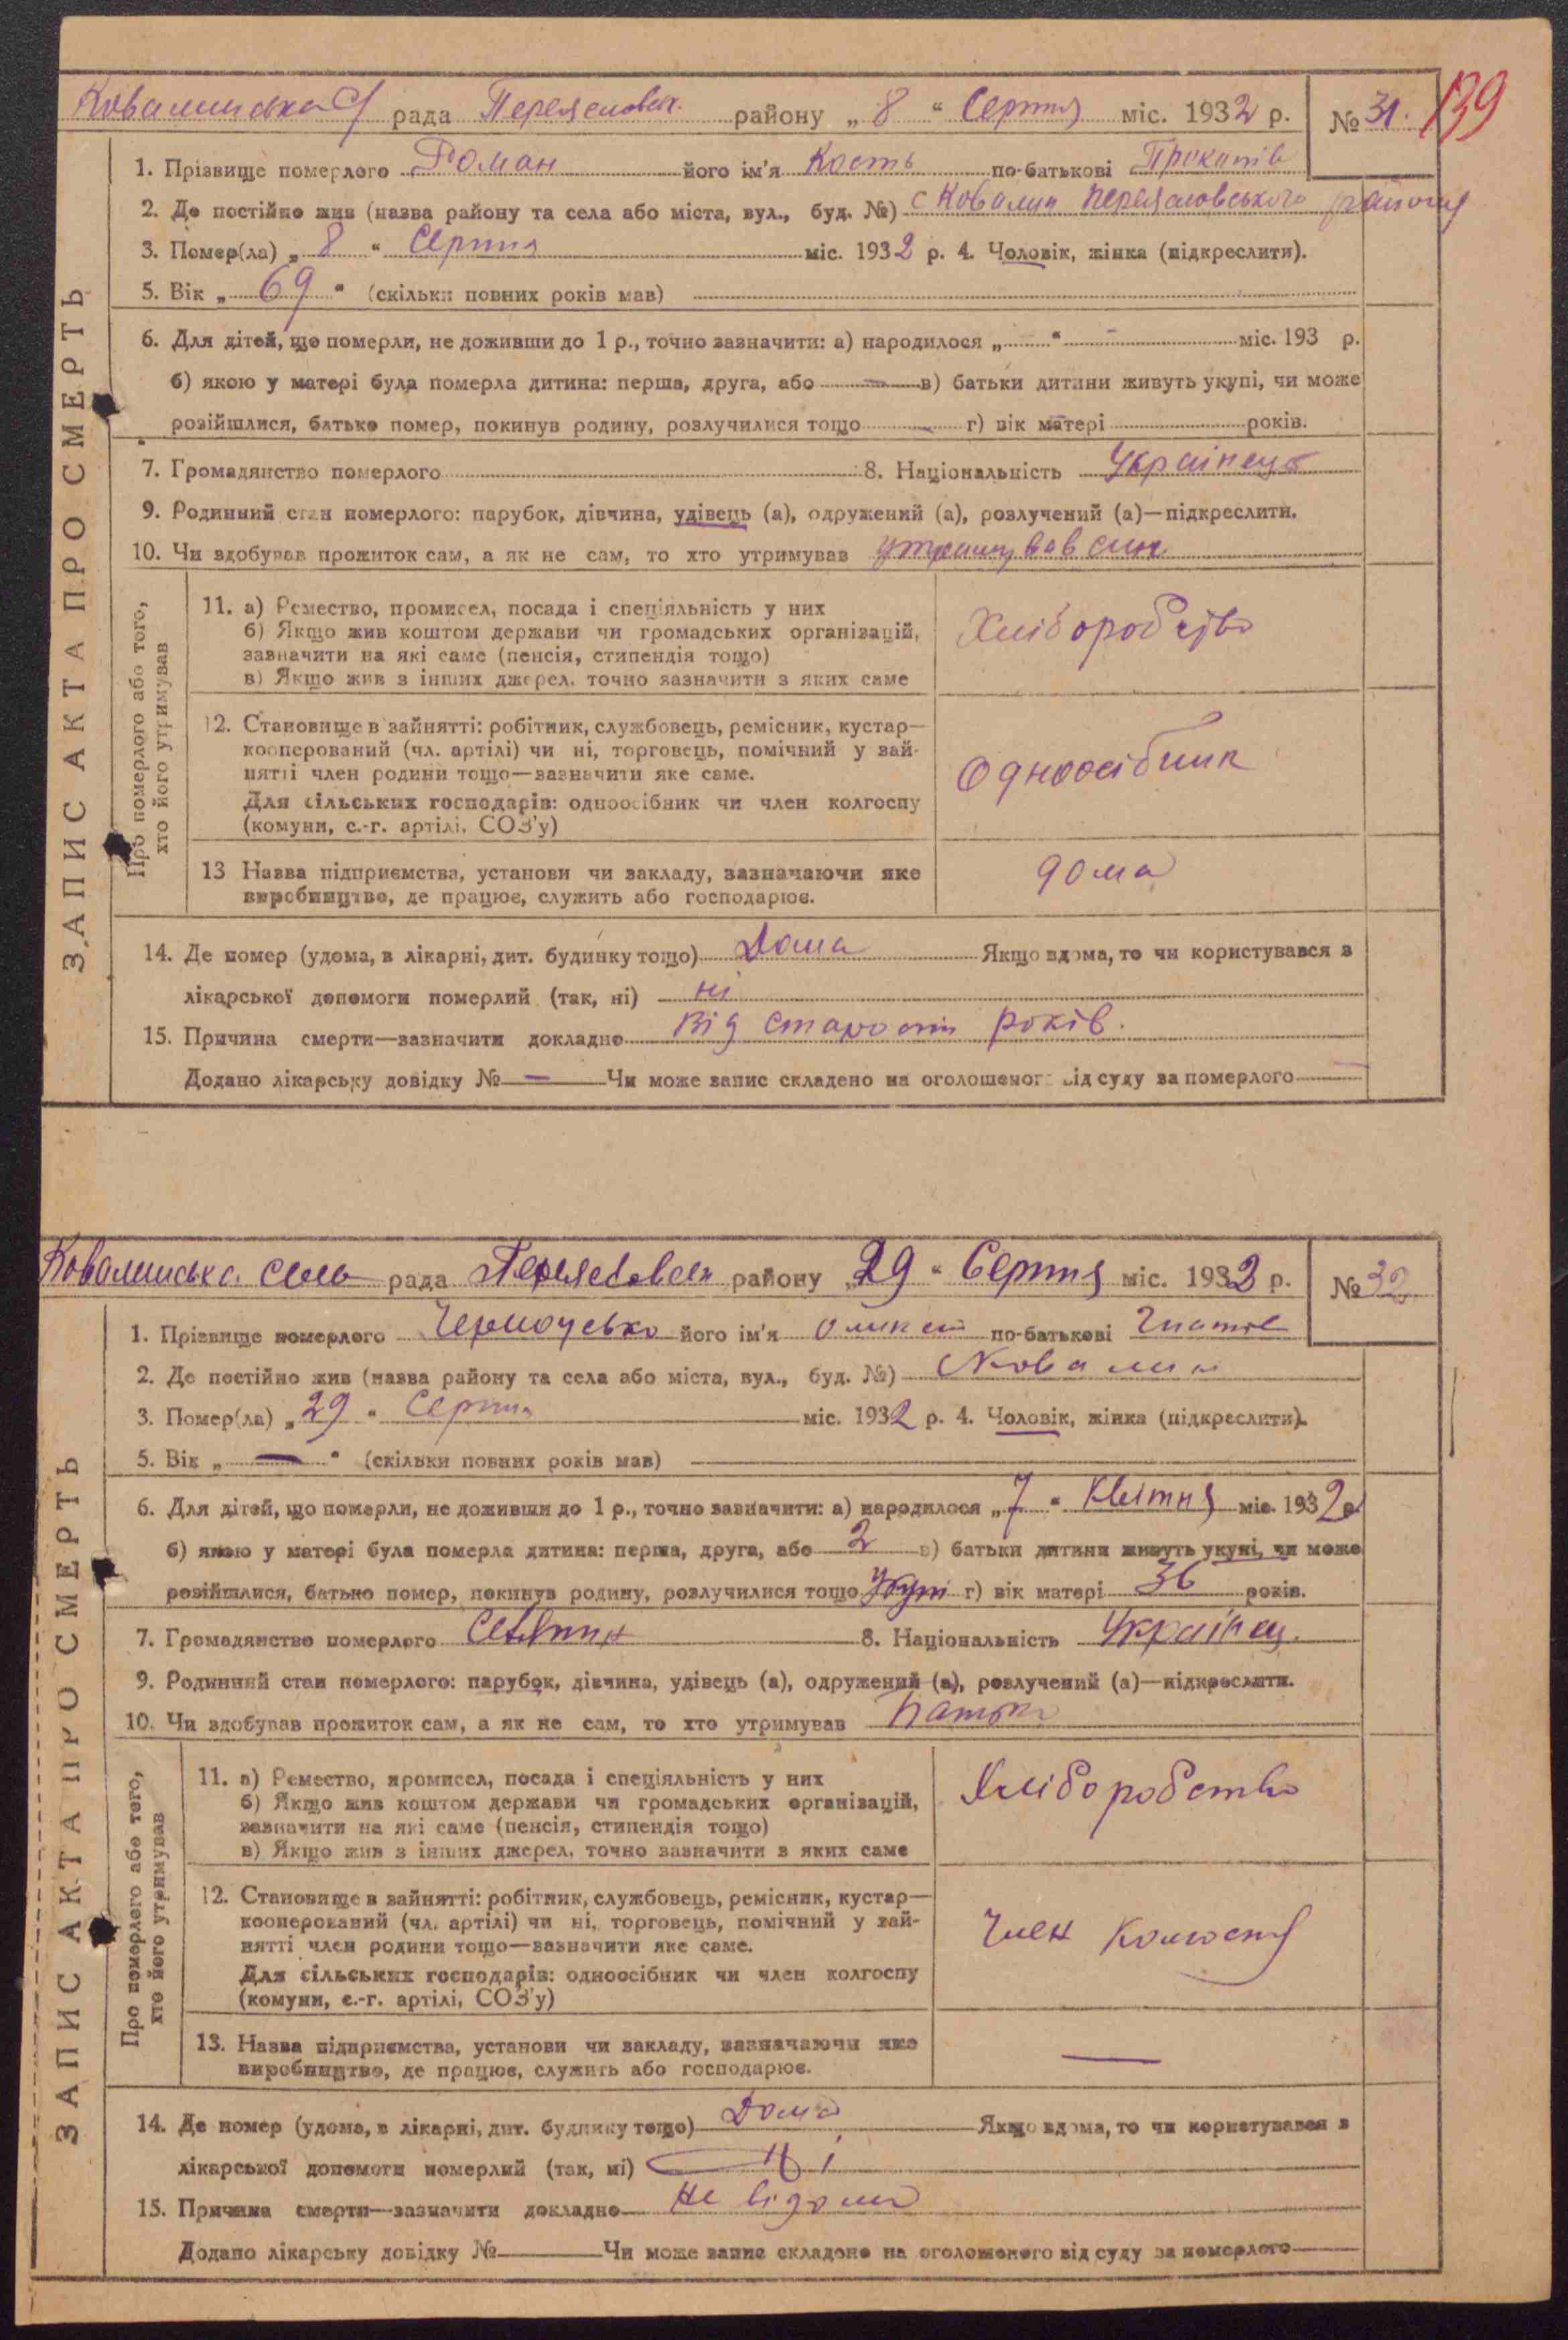 Ковалинська С/ рада Переяславськ. району „8“ Серпня міс. 1932 р. № 31. 139
1. Прізвище померлого Роман його ім'я Кость по-батькові Прокопів
2. Де постійно жив (назва району та села або міста, вул., буд. №) с Ковалин Переяславського району
3. Помер(ла) „8“ Серпня міс. 1932 р. 4. Чоловік, жінка (підкреслити).
5. Вік „69“ (скільки повних років мав)
6. Для дітей, що померли, не доживши до 1 р., точно зазначити: а) народилося „ “ – міс. 193 р.
б) якою у матері була померла дитина: перша, друга, або — в) батьки дитини живуть укупі, чи може
розійшлися, батько помер, покинув родину, розлучилися тощо — г) вік матері – років.
7. Громадянство померлого 8. Національність Українець
9. Родинний стан померлого: парубок, дівчина, удівець (а), одружений (а), розлучений (а)—підкреслити.
10. Чи здобував прожиток сам, а як не сам, то хто утримував утримував син
ЗАПИС АКТА ПРО СМЕРТЬ
Про померлого або того,
хто його утримував
11. а) Ремество, промисел, посада і спеціяльність у них
б) Якщо жив коштом держави чи громадських організацій,
зазначити на які саме (пенсія, стипендія тощо)
в) Якщо жив з інших джерел, точно зазначити з яких саме
Хліборобство
12. Становище в зайнятті: робітник, службовець, ремісник, кустар—
кооперований (чл. артілі) чи ні, торговець, помічний у зай-
нятті член родини тощо—зазначити яке саме.
Для сільських господарів: одноосібник чи член колгоспу
(комуни, с.-г. артілі, СОЗ'у)
Одноосібник
13 Назва підприємства, установи чи закладу, зазначаючи яке
виробництво, де працює, служить або господарює.
дома
14. Де помер (удома, в лікарні, дит. будинку тощо) Дома Якщо вдома, то чи користувався з
лікарської допомоги померлий (так, ні) ні
15. Причина смерти—зазначити докладно Від старости років.
Додано лікарську довідку № — Чи може запис складено на оголошеного від суду за померлого —
Ковалинська село рада Переяславськ району „29“ Серпня міс. 1932 р. № 32
1. Прізвище померлого його ім'я по-батькові
2. Де постійно жив (назва району та села або міста, вул., буд. №) с Ковалин
3. Помер(ла) „29“ Серпня міс. 1932 р. 4. Чоловік, жінка (підкреслити).
5. Вік „—“ (скільки повних років мав)
6. Для дітей, що померли, не доживши до 1 р., точно зазначити: а) народилося „7“ Квітня міс. 1932 р.
б) якою у матері була померла дитина: перша, друга, або 2 в) батьки дитини живуть укупі, чи може
розійшлися, батько помер, покинув родину, розлучилися тощо укупі г) вік матері 36 років.
7. Громадянство померлого 8. Національність Українець.
9. Родинний стан померлого: парубок, дівчина, удівець (а), одружений (а), розлучений (а)—підкреслити.
10. Чи здобував прожиток сам, а як не сам, то хто утримував Батьки
ЗАПИС АКТА ПРО СМЕРТЬ
Про померлого або того,
хто його утримував
11. а) Ремество, промисел, посада і спеціяльність у них
б) Якщо жив коштом держави чи громадських організацій,
зазначити на які саме (пенсія, стипендія тощо)
в) Якщо жив з інших джерел, точно зазначити з яких саме
Хліборобство
12. Становище в зайнятті: робітник, службовець, ремісник, кустар—
кооперований (чл. артілі) чи ні, торговець, помічний у зай-
нятті член родини тощо—зазначити яке саме.
Для сільських господарів: одноосібник чи член колгоспу
(комуни, с.-г. артілі, СОЗ'у)
Член колгоспу
13. Назва підприємства, установи чи закладу, зазначаючи яке
виробництво, де працює, служить або господарює.
—
14. Де помер (удома, в лікарні, дит. будинку тощо) Дома Якщо вдома, то чи користувався з
лікарської допомоги померлий (так, ні) Ні
15. Причина смерти—зазначити докладно Не відома
Додано лікарську довідку № Чи може запис складено на оголошеного від суду за померлого